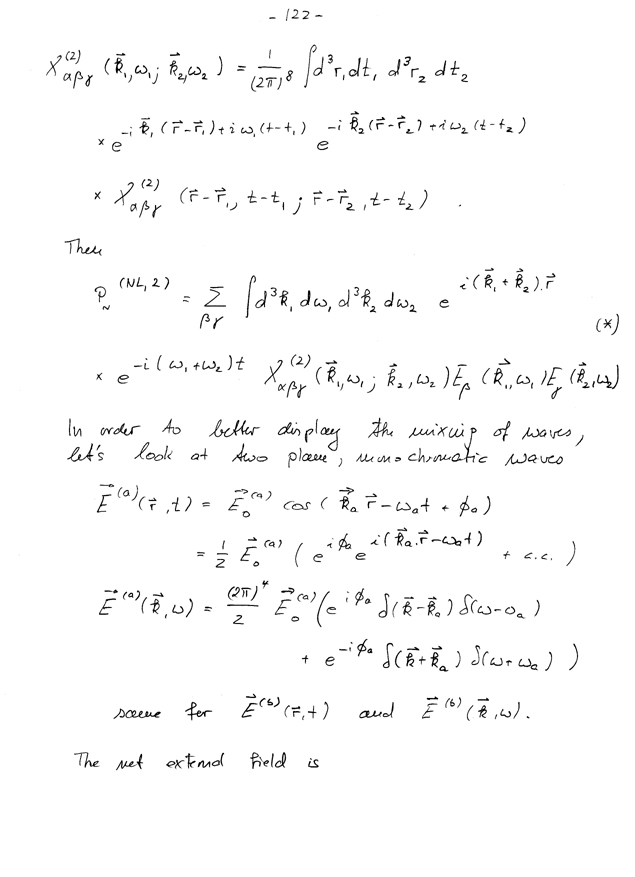 - 122 -
χ_{αβγ}^{(2)} (k⃗₁,ω₁; k⃗₂,ω₂) = 1/(2π)⁸ ∫d³r₁dt₁ d³r₂ dt₂
× e^{-i k⃗₁(r⃗-r⃗₁)+iω₁(t-t₁)} e^{-i k⃗₂(r⃗-r⃗₂)+iω₂(t-t₂)}
× χ_{αβγ}^{(2)} (r⃗-r⃗₁, t-t₁; r⃗-r⃗₂, t-t₂) .
Then
P_~^{(NL,2)} = Σ_{βγ} ∫d³k₁ dω₁ d³k₂ dω₂ e^{i(k⃗₁+k⃗₂).r⃗}
(*)
× e^{-i(ω₁+ω₂)t} χ_{αβγ}^{(2)}(k⃗₁,ω₁; k⃗₂,ω₂) E_β(k⃗₁,ω₁) E_γ(k⃗₂,ω₂)
In order to better display the mixing of waves,
let's look at two plane, monochromatic waves
E⃗^{(a)}(r⃗,t) = E⃗₀^{(a)} cos(k⃗ₐ r⃗-ωₐt + φₐ)
= 1/2 E⃗₀^{(a)} (e^{iφₐ} e^{i(k⃗ₐ.r⃗-ωₐt)} + c.c.)
E⃗^{(a)}(k⃗,ω) = (2π)⁴/2 E⃗₀^{(a)}(e^{iφₐ} δ(k⃗-k⃗ₐ) δ(ω-ωₐ)
+ e^{-iφₐ} δ(k⃗+k⃗ₐ) δ(ω+ωₐ))
same for E⃗^{(b)}(r⃗,t) and E⃗^{(b)}(k⃗,ω).
The net external field is